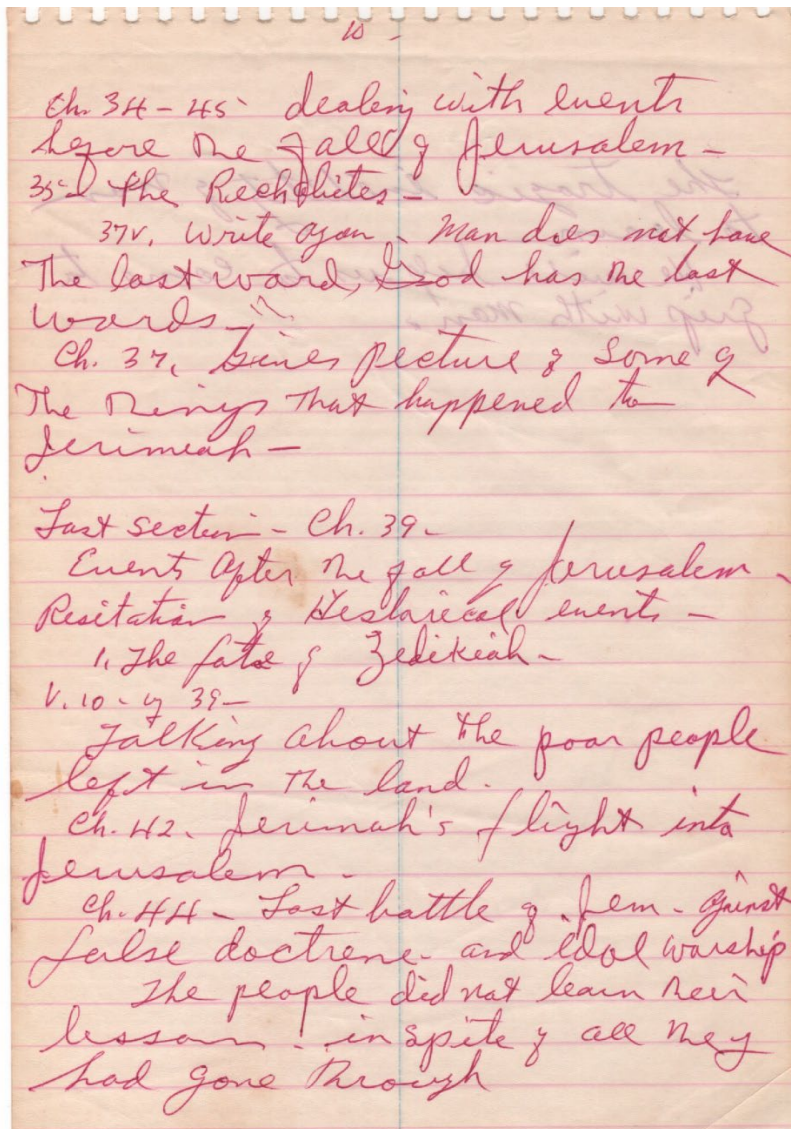 10 -
Ch. 34-45- dealing with events
before the fall of Jerusalem -
35- The Rechabites -
37v. Write again - Man does not have
The last word, God has the last
words -
Ch. 37, Gives picture of some of
The things that happened to
Jerimeah -
Last section - Ch. 39 -
Events After the fall of Jerusalem -
Resitation of Historical events -
1. The fate of Zedikiah -
V. 10 - of 39 -
Talking about the poor people
left in the land.
Ch. 42. Jerimah's flight into
Jerusalem -
Ch. 44 - Last battle of Jem. against
false doctrene. and idol worship
The people did not learn their
lesson - in spite of all they
had gone through